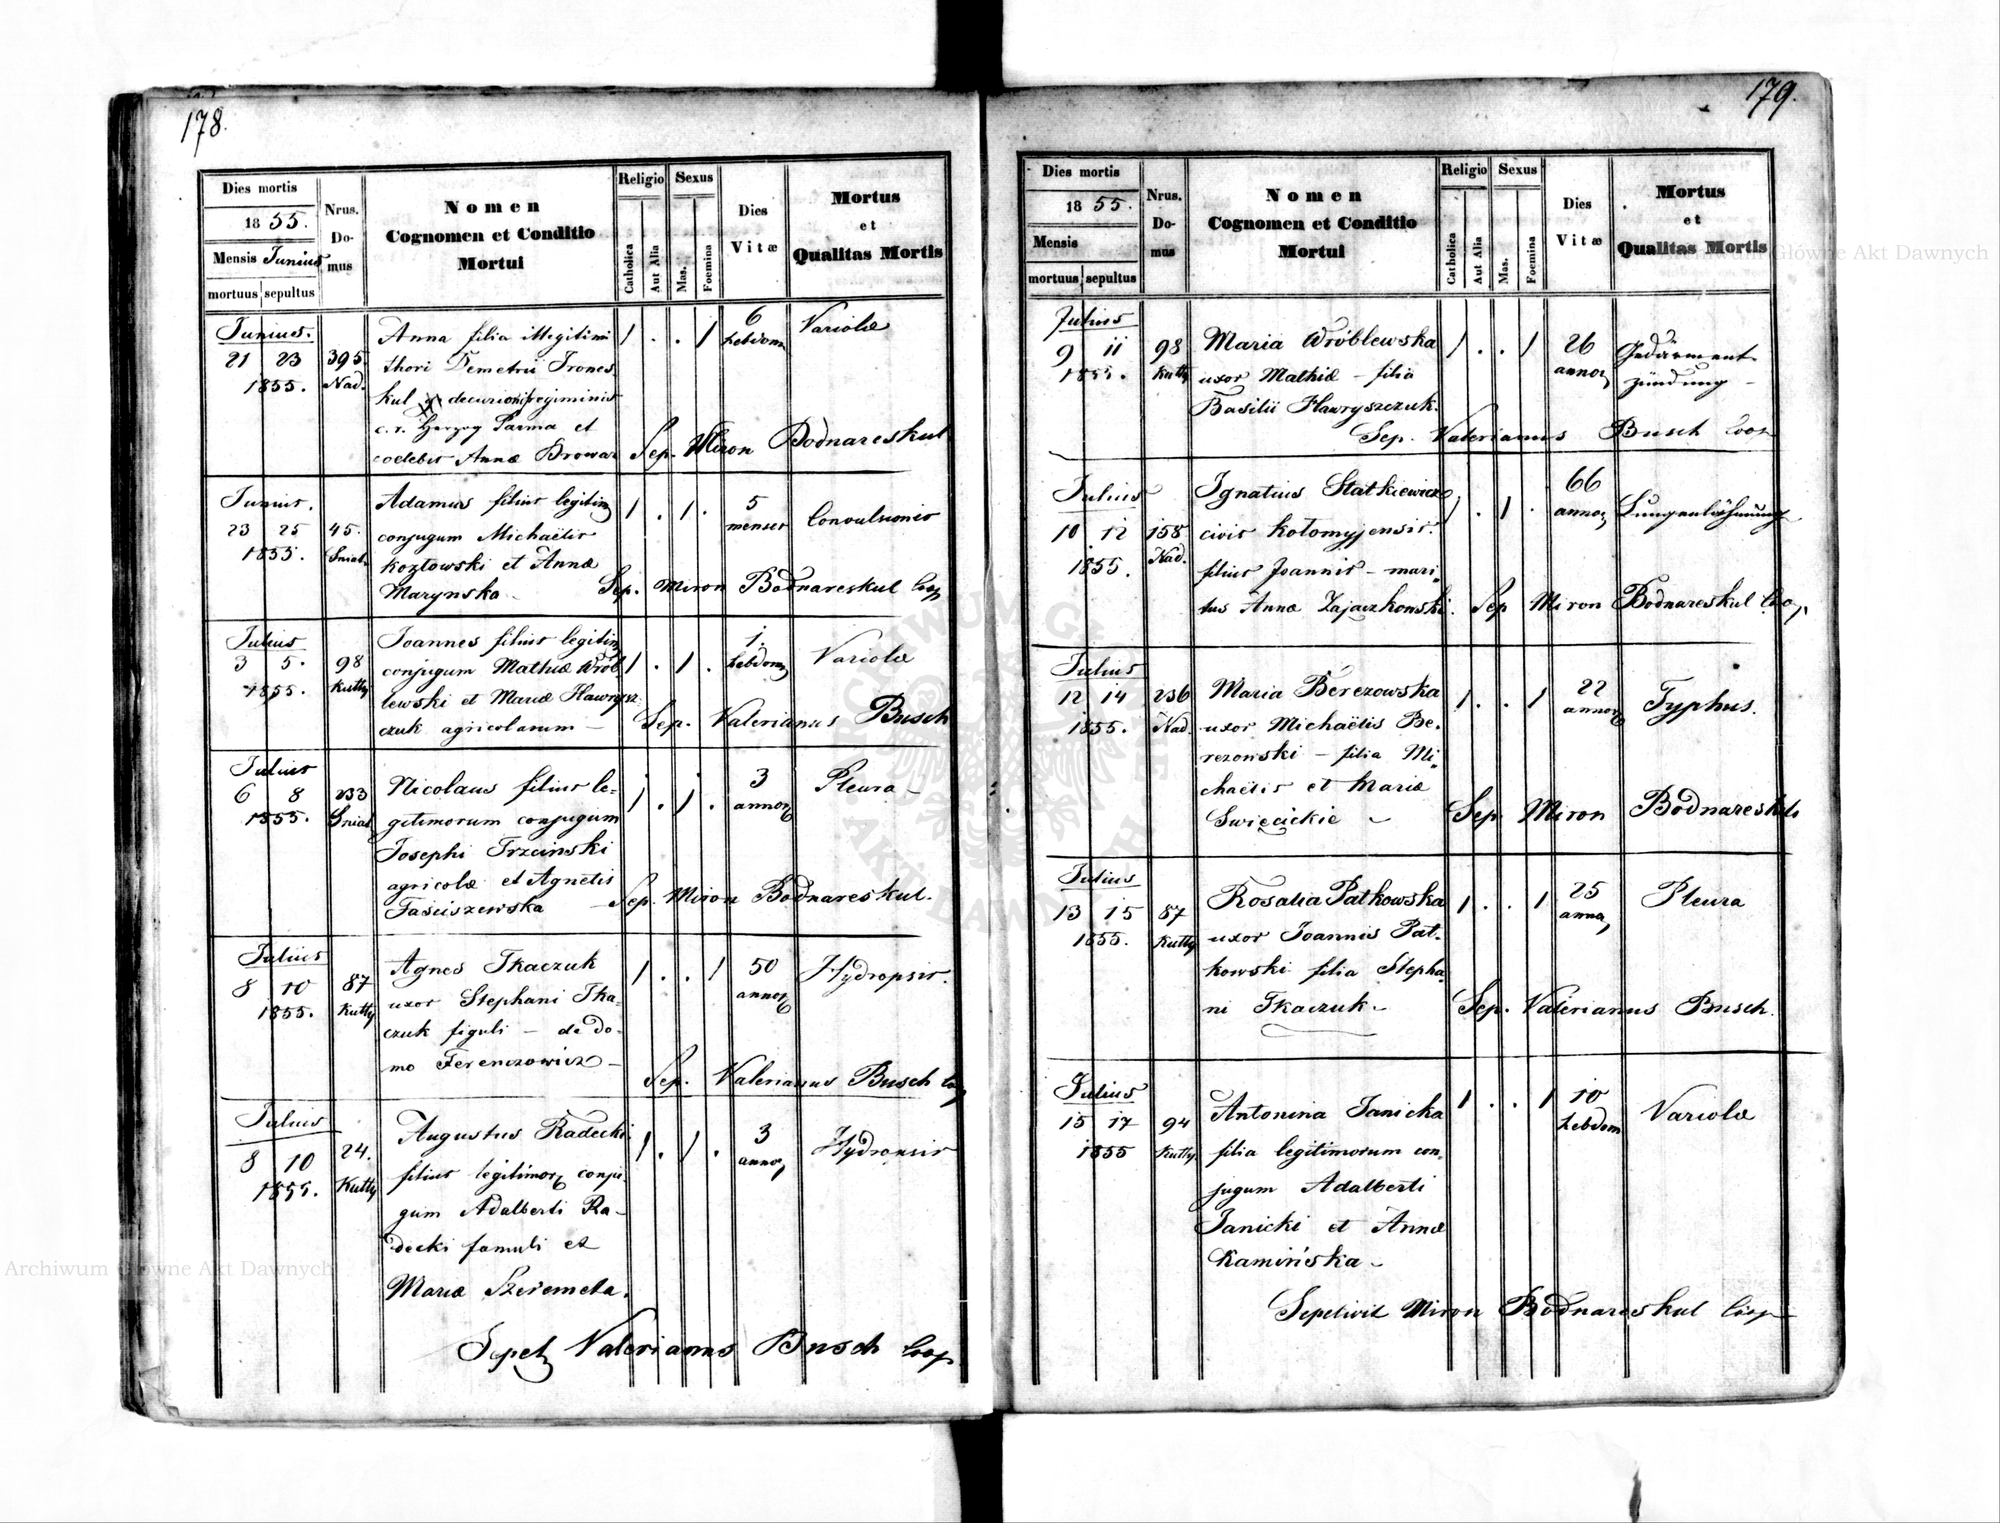 178.
Dies mortis
1855.
Mensis Junius
mortuus sepultus
Nrus. Domus
Nomen
Cognomen et Conditio
Mortui
Religio
Catholica
Aut Alia
Sexus
Mas.
Foemina
Dies
Vitæ
Mortus
et
Qualitas Mortis
Junius.
21 23 395
1855. Nad.
Anna filia illegitimi
thori Demetrii Irones
kul decurionis regiminis
c. r. Herzog Parma et
coelebis Annæ Browar
1 . . 1
6
hebdom
Variolæ
Sep. Miron Bodnareskul
Junius.
23 25 45.
1855. Sniat.
Adamus filius legitim
conjugum Michaëlis
Kozłowski et Annæ
Marynska
1 . 1 .
5
menses
Convulsionis
Sep. Miron Bodnareskul Coop
Julius
3 5. 98
1855. Kutty
Joannes filius legitim
conjugum Mathiæ Wrób
lewski et Mariæ Hawrysz
czuk agricolarum –
1 . 1 .
1.
hebdom
Variolæ
Sep. Valerianus Busch
Julius
6 8 233
1855. Sniat
Nicolaus filius le-
gitimorum conjugum
Josephi Trzcinski
agricolæ et Agnetis
Taściszewska –
1 . 1 .
3
annor
Pleura –
Sep. Miron Bodnareskul.
Julius
8 10 87
1855. Kutty
Agnes Tkaczuk
uxor Stephani Tka-
czuk figuli – de do-
mo Ferenczowicz –
1 . . 1
50
annor
Hydropsis.
Sep. Valerianus Busch Coop
Julius
8 10 24.
1855. Kutty
Augustus Radecki
filius legitimor conju
gum Adalberti Ra-
decki famuli et
Mariæ Szeremeta.
1 . 1 .
3
annor
Hydropsis
Sepel Valerianus Busch Coop
179.
Dies mortis
1855.
Mensis
mortuus sepultus
Nrus. Domus
Nomen
Cognomen et Conditio
Mortui
Religio
Catholica
Aut Alia
Sexus
Mas.
Foemina
Dies
Vitæ
Mortus
et
Qualitas Mortis
Julius
9 11 98
1855. Kutty
Maria Wróblewska
uxor Mathiæ – filia
Basilii Hawryszczuk.
1 . . 1
26
annor
Gedärment
zündung –
Sep. Valerianus Busch Coop
Julius
10 12 158
1855. Nad.
Ignatius Statkiewicz
civis Kołomyjensis.
filius Joannis – mari
tus Annæ Zajaczkowski.
1 . 1 .
66
annor
Lungenlähmung
Sep Miron Bodnareskul Coop.
Julius
12 14 236
1855. Nad.
Maria Berezowska
uxor Michaëlis Be-
rezowski – filia Mi
chaëlis et Mariæ
Swięcickie –
1 . . 1
22
annor
Typhus.
Sep. Miron Bodnareskul
Julius
13 15 87
1855. Kutty
Rosalia Patkowska
uxor Joannis Pat-
kowski filia Stepha
ni Tkaczuk –
1 . . 1
25
anna
Pleura
Sep. Valerianus Busch.
Julius
15 17 94
1855 Kutty
Antonina Janicka
filia legitimorum con
jugum Adalberti
Janicki et Annæ
Kamińska –
1 . . 1
10
hebdom
Variolæ
Sepelivit Miron Bodnareskul Coop
Archiwum Główne Akt Dawnych
Archiwum Główne Akt Dawnych
ARCHIWUM GŁÓWNE AKT DAWNYCH